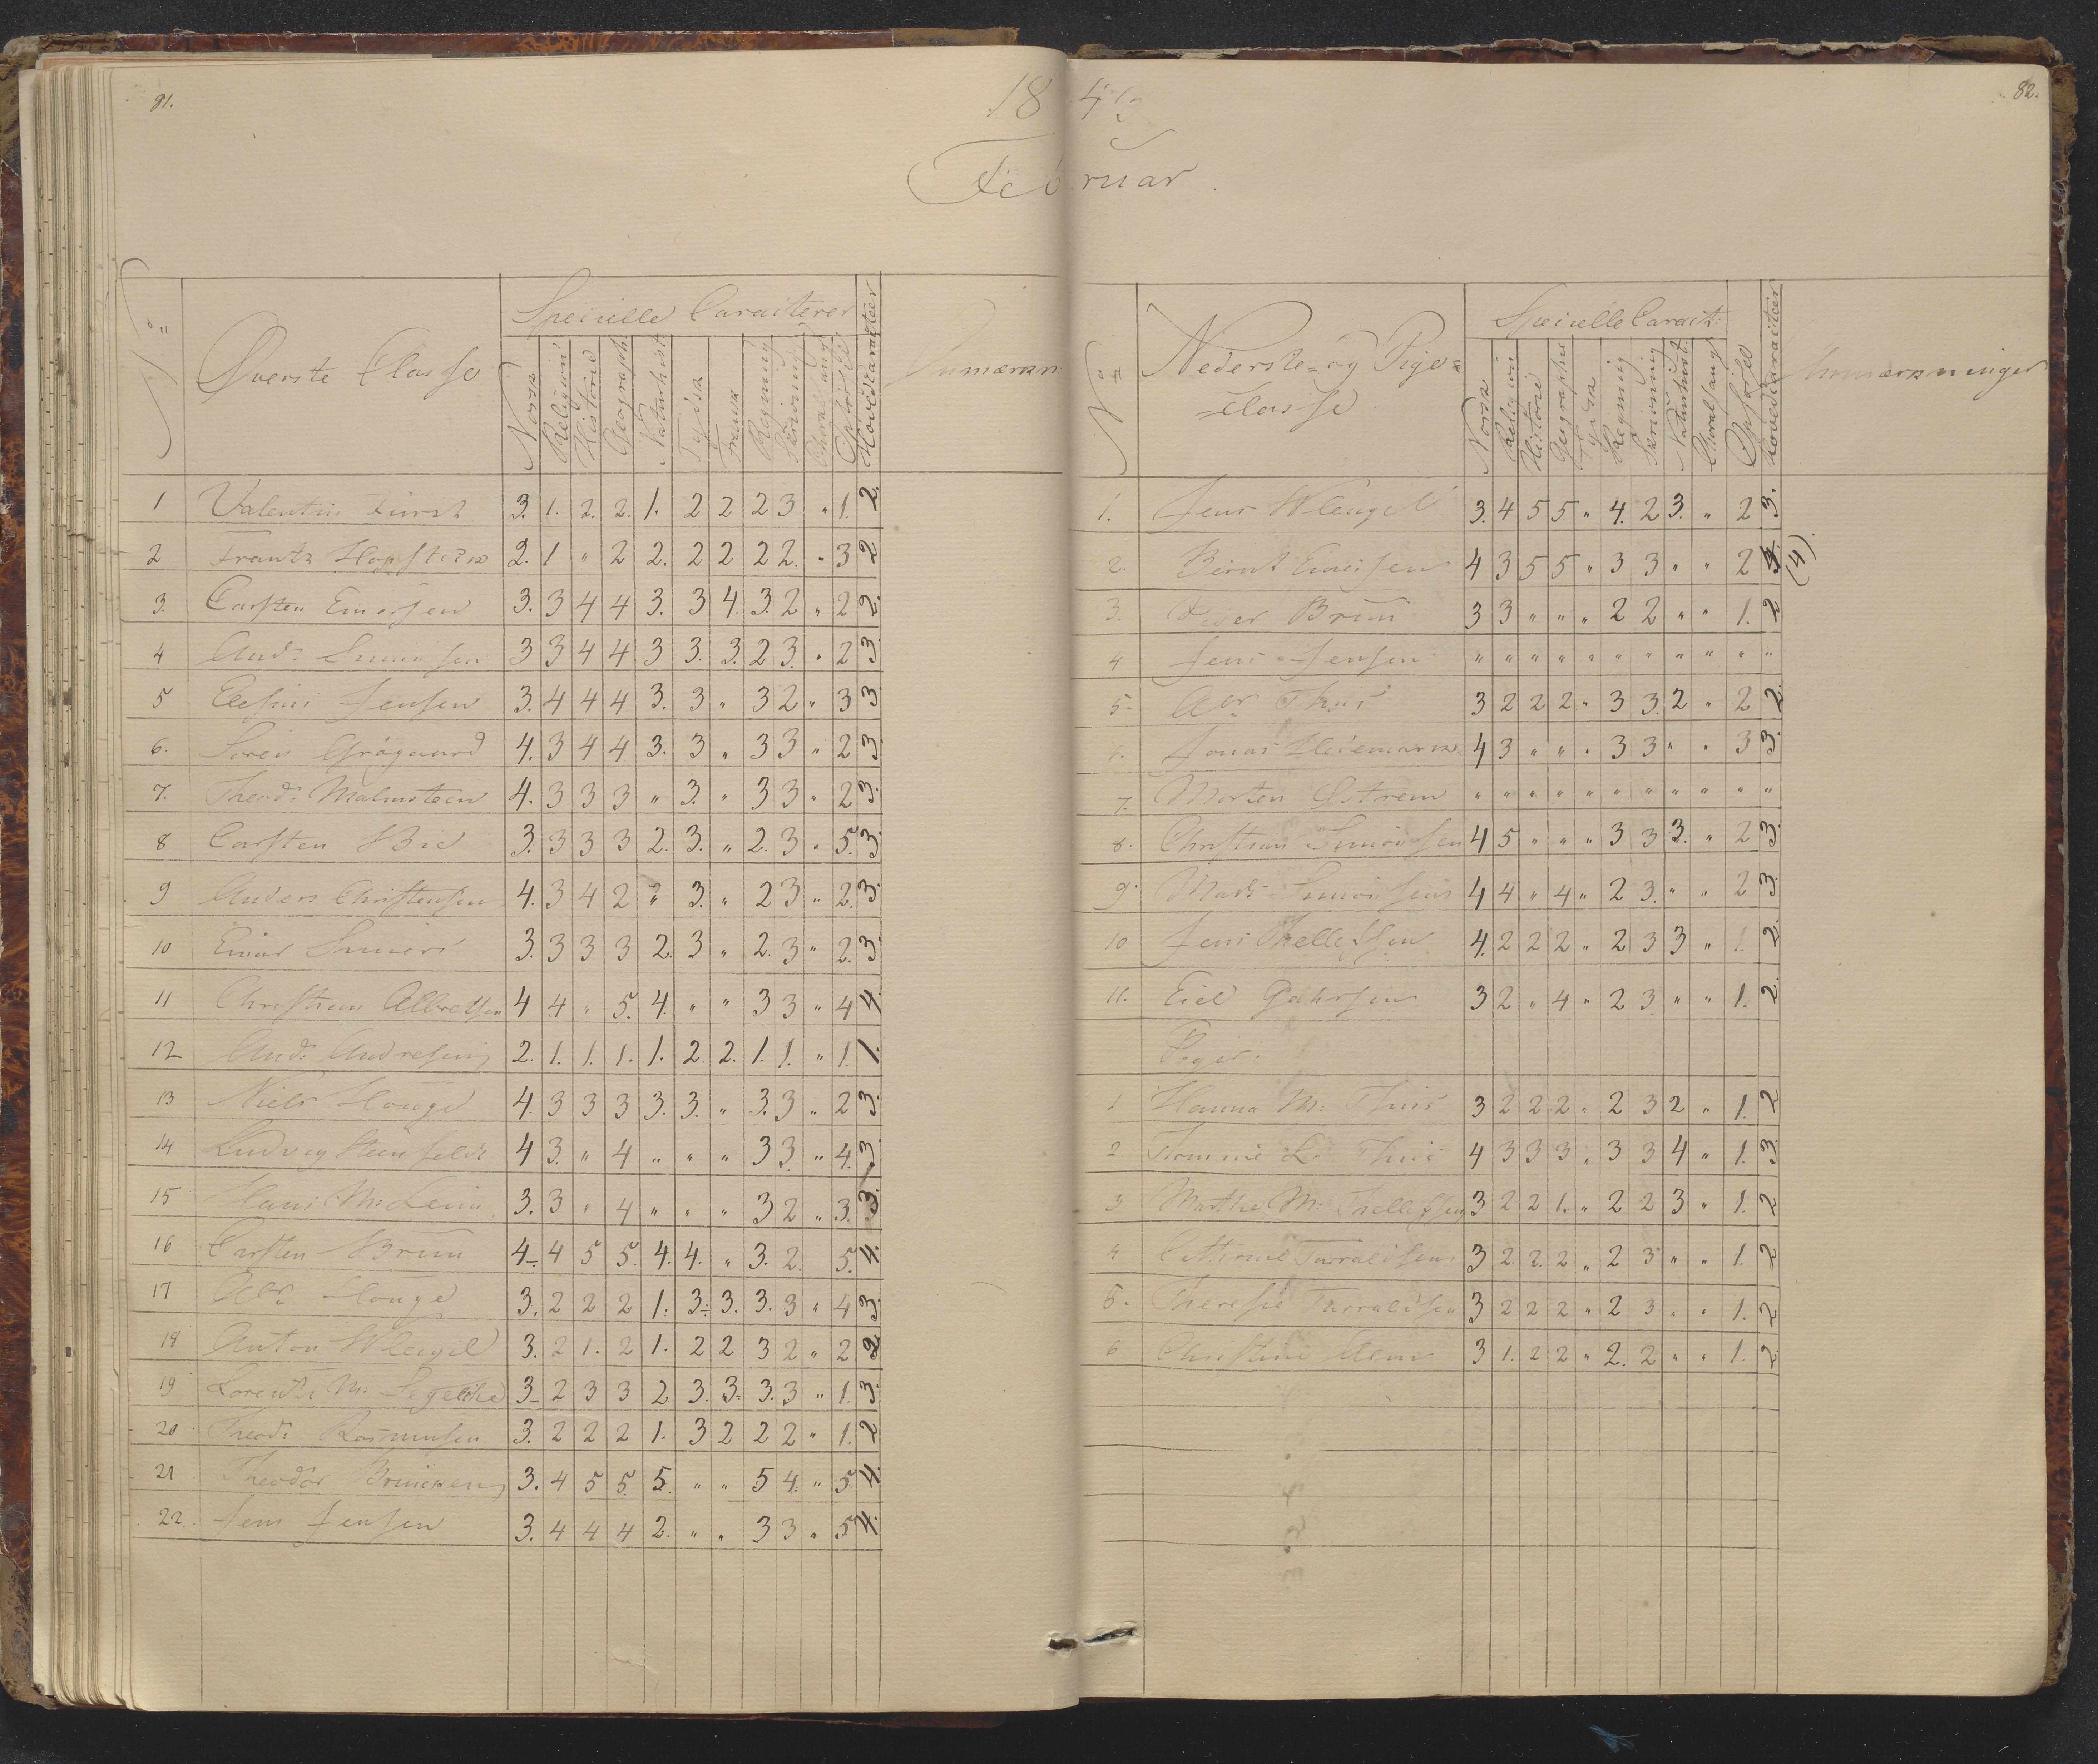 81.
18
Februar
Øverste Classe
Specielle Caracterer
Norsk Religion Historie Geograph. Naturhist. Tydsk Fransk Regning Skrivning Choralsang Opførsel Hovedcaracter
1 Valentin Fürst 3. 1. 2. 2. 1. 2 2 2 3 " 1. 2.
2 Frantz 2. 1 " 2 2. 2 2 2 2. " 3 2
3. Carsten 3. 3 4 4 3. 3 4. 3. 2 " 2 2.
4 And: 3 3 4 4 3 3. 3. 2 3. " 2 3.
5 Jensen 3. 4 4 4 3. 3 " 3 2 " 3 3
6. Søren Grøgaard 4. 3 4 4 3. 3 " 3 3 " 2 3.
7. Theod: Malmsteen 4. 3 3 3 " 3. " 3 3 " 2 3.
8 Carsten Bie 3. 3 3 3 2. 3. " 2. 3 " 5. 3.
9 Anders Christensen 4. 3 4 2 " 3. " 2 3 " 2. 3.
10 Einar 3. 3 3 3 2. 3 " 2. 3 " 2. 3
11 Christian Albretsen 4 4 " 5. 4. " " 3 3 " 4 4.
12 And: Andresen 2. 1. 1. 1. 1. 2. 2. 1. 1. " 1. 1.
13 Niels Houge 4. 3 3 3 3. 3. " 3. 3 " 2 3.
14 Ludvig Steenfeldt 4 3. " 4 " " " 3 3. " 4. 3.
15 Hans M: 3. 3 " 4 " " " 3 2 " 3. 3.
16 Carsten Bruun 4 4 5 5. 4. 4. " 3. 2. 5. 4.
17 Houge 3. 2 2 2 1. 3. 3. 3. 3 " 4 3.
18 Anton Wleugel 3. 2 1. 2 1. 2 2 3 2 " 2 2
19 Lorentz M: Segelcke 3 2 3 3 2. 3. 3. 3. 3 " 1. 3.
20 Theod: Rasmussen 3. 2 2 2 1. 3 2 2 2 " 1. 2
21 Theodor 3. 4 5 5. 5. " " 5 4. " 5. 4.
22. Jens Jensen 3. 4 4 4 2. " " 3 3 " 5 4.
82.
Nederste- og Pige-
classe.
Specielle Caract:
Anmærkninger
Norsk Religion Historie Geographie Tydsk Regning Skrivning Naturhist. Choralsang Opførsel Hovedcaracter
1. Jens Wleugel 3. 4 5 5 " 4. 2 3. " 2 3.
2. 4 3 5 5 " 3 3 " " 2 (4)
3. Peder Bruun 3 3 " " " 2 2 " " 1. 2
4 Jens Jensen " " " " " " " " " " "
5. Thiis 3 2 2 2 " 3 3. 2 " 2 2.
6. Jonas 4 3 " " " 3 3 " " 3 3.
7. Morten Østrem " " " " " " " " " " "
8. Christian Simonsen 4 5 " " " 3 3 3. " 2 3.
9. Mads Simonsen 4 4 " 4 " 2 3. " " 2 3.
10 Jens Thellefsen 4. 2 2 2 " 2 3 3 " 1. 2.
11. 3 2 " 4 " 2 3. " " 1. 2.
Piger.
1 Hanna M: Thiis 3 2 2 2 " 2 3 2 " 1. 2
2 Thiis 4 3 3 3 " 3 3 4 " 1. 3.
3 Marthe M: Thellefsen 3 2 2 1. " 2 2 3 " 1. 2
4 Cathrine 3 2 2 2 " 2 3 " " 1. 2
5. Therese 3 2 2 2 " 2 3 " " 1. 2
6 Christine 3 1. 2 2 " 2. 2 " " 1. 2.